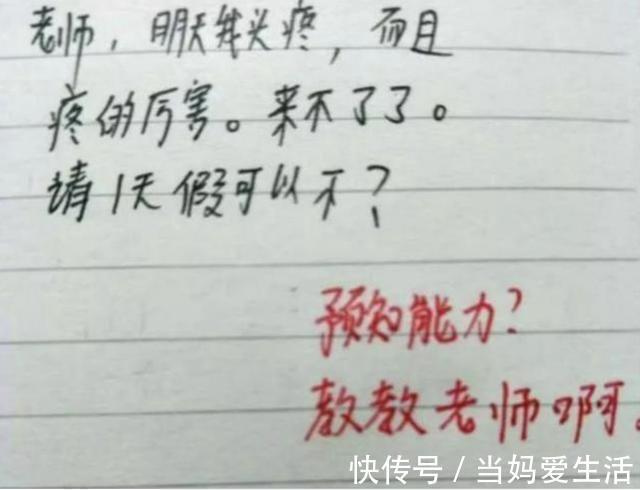 老师，明天我头疼，而且
疼的厉害。来不了了。
请1天假可以不？
预知能力？
教教老师啊。
快传号/当妈爱生活